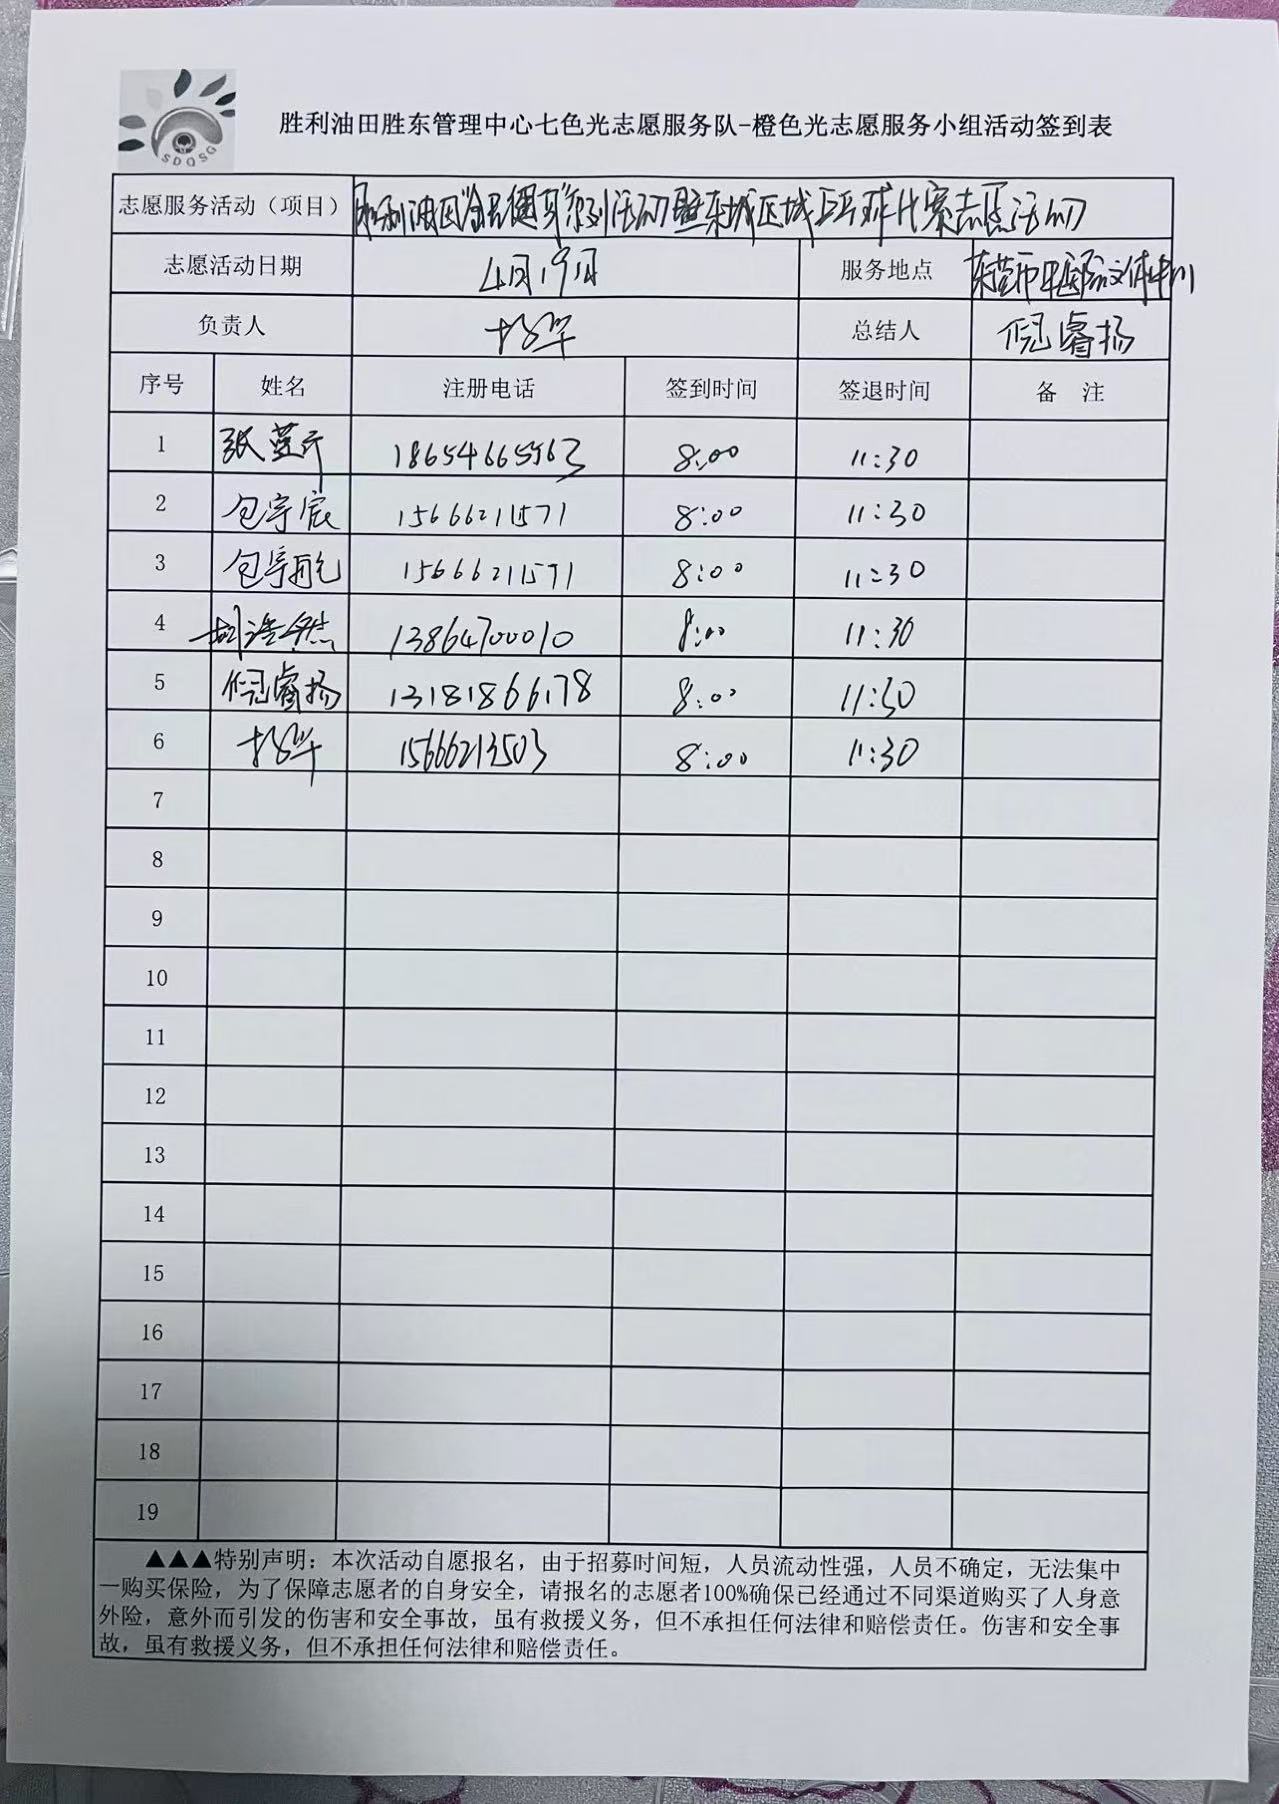 SDQSG
胜利油田胜东管理中心七色光志愿服务队-橙色光志愿服务小组活动签到表
志愿服务活动（项目） 胜利油田"全民健身"系列活动暨东城区域乒乓球比赛志愿活动
志愿活动日期 4月19日 服务地点 东营市中医院文体中心
负责人 总结人 倪睿扬
序号 姓名 注册电话 签到时间 签退时间 备 注
1 张蓝 18654665563 8:00 11:30
2 包宇宸 15666211571 8:00 11:30
3 包宇航 15666211571 8:00 11:30
4 浩然 13864700010 8:00 11:30
5 倪睿扬 13181866178 8:00 11:30
6 15666213503 8:00 11:30
7
8
9
10
11
12
13
14
15
16
17
18
19
▲▲▲特别声明：本次活动自愿报名，由于招募时间短，人员流动性强，人员不确定，无法集中
一购买保险，为了保障志愿者的自身安全，请报名的志愿者100%确保已经通过不同渠道购买了人身意
外险，意外而引发的伤害和安全事故，虽有救援义务，但不承担任何法律和赔偿责任。伤害和安全事
故，虽有救援义务，但不承担任何法律和赔偿责任。